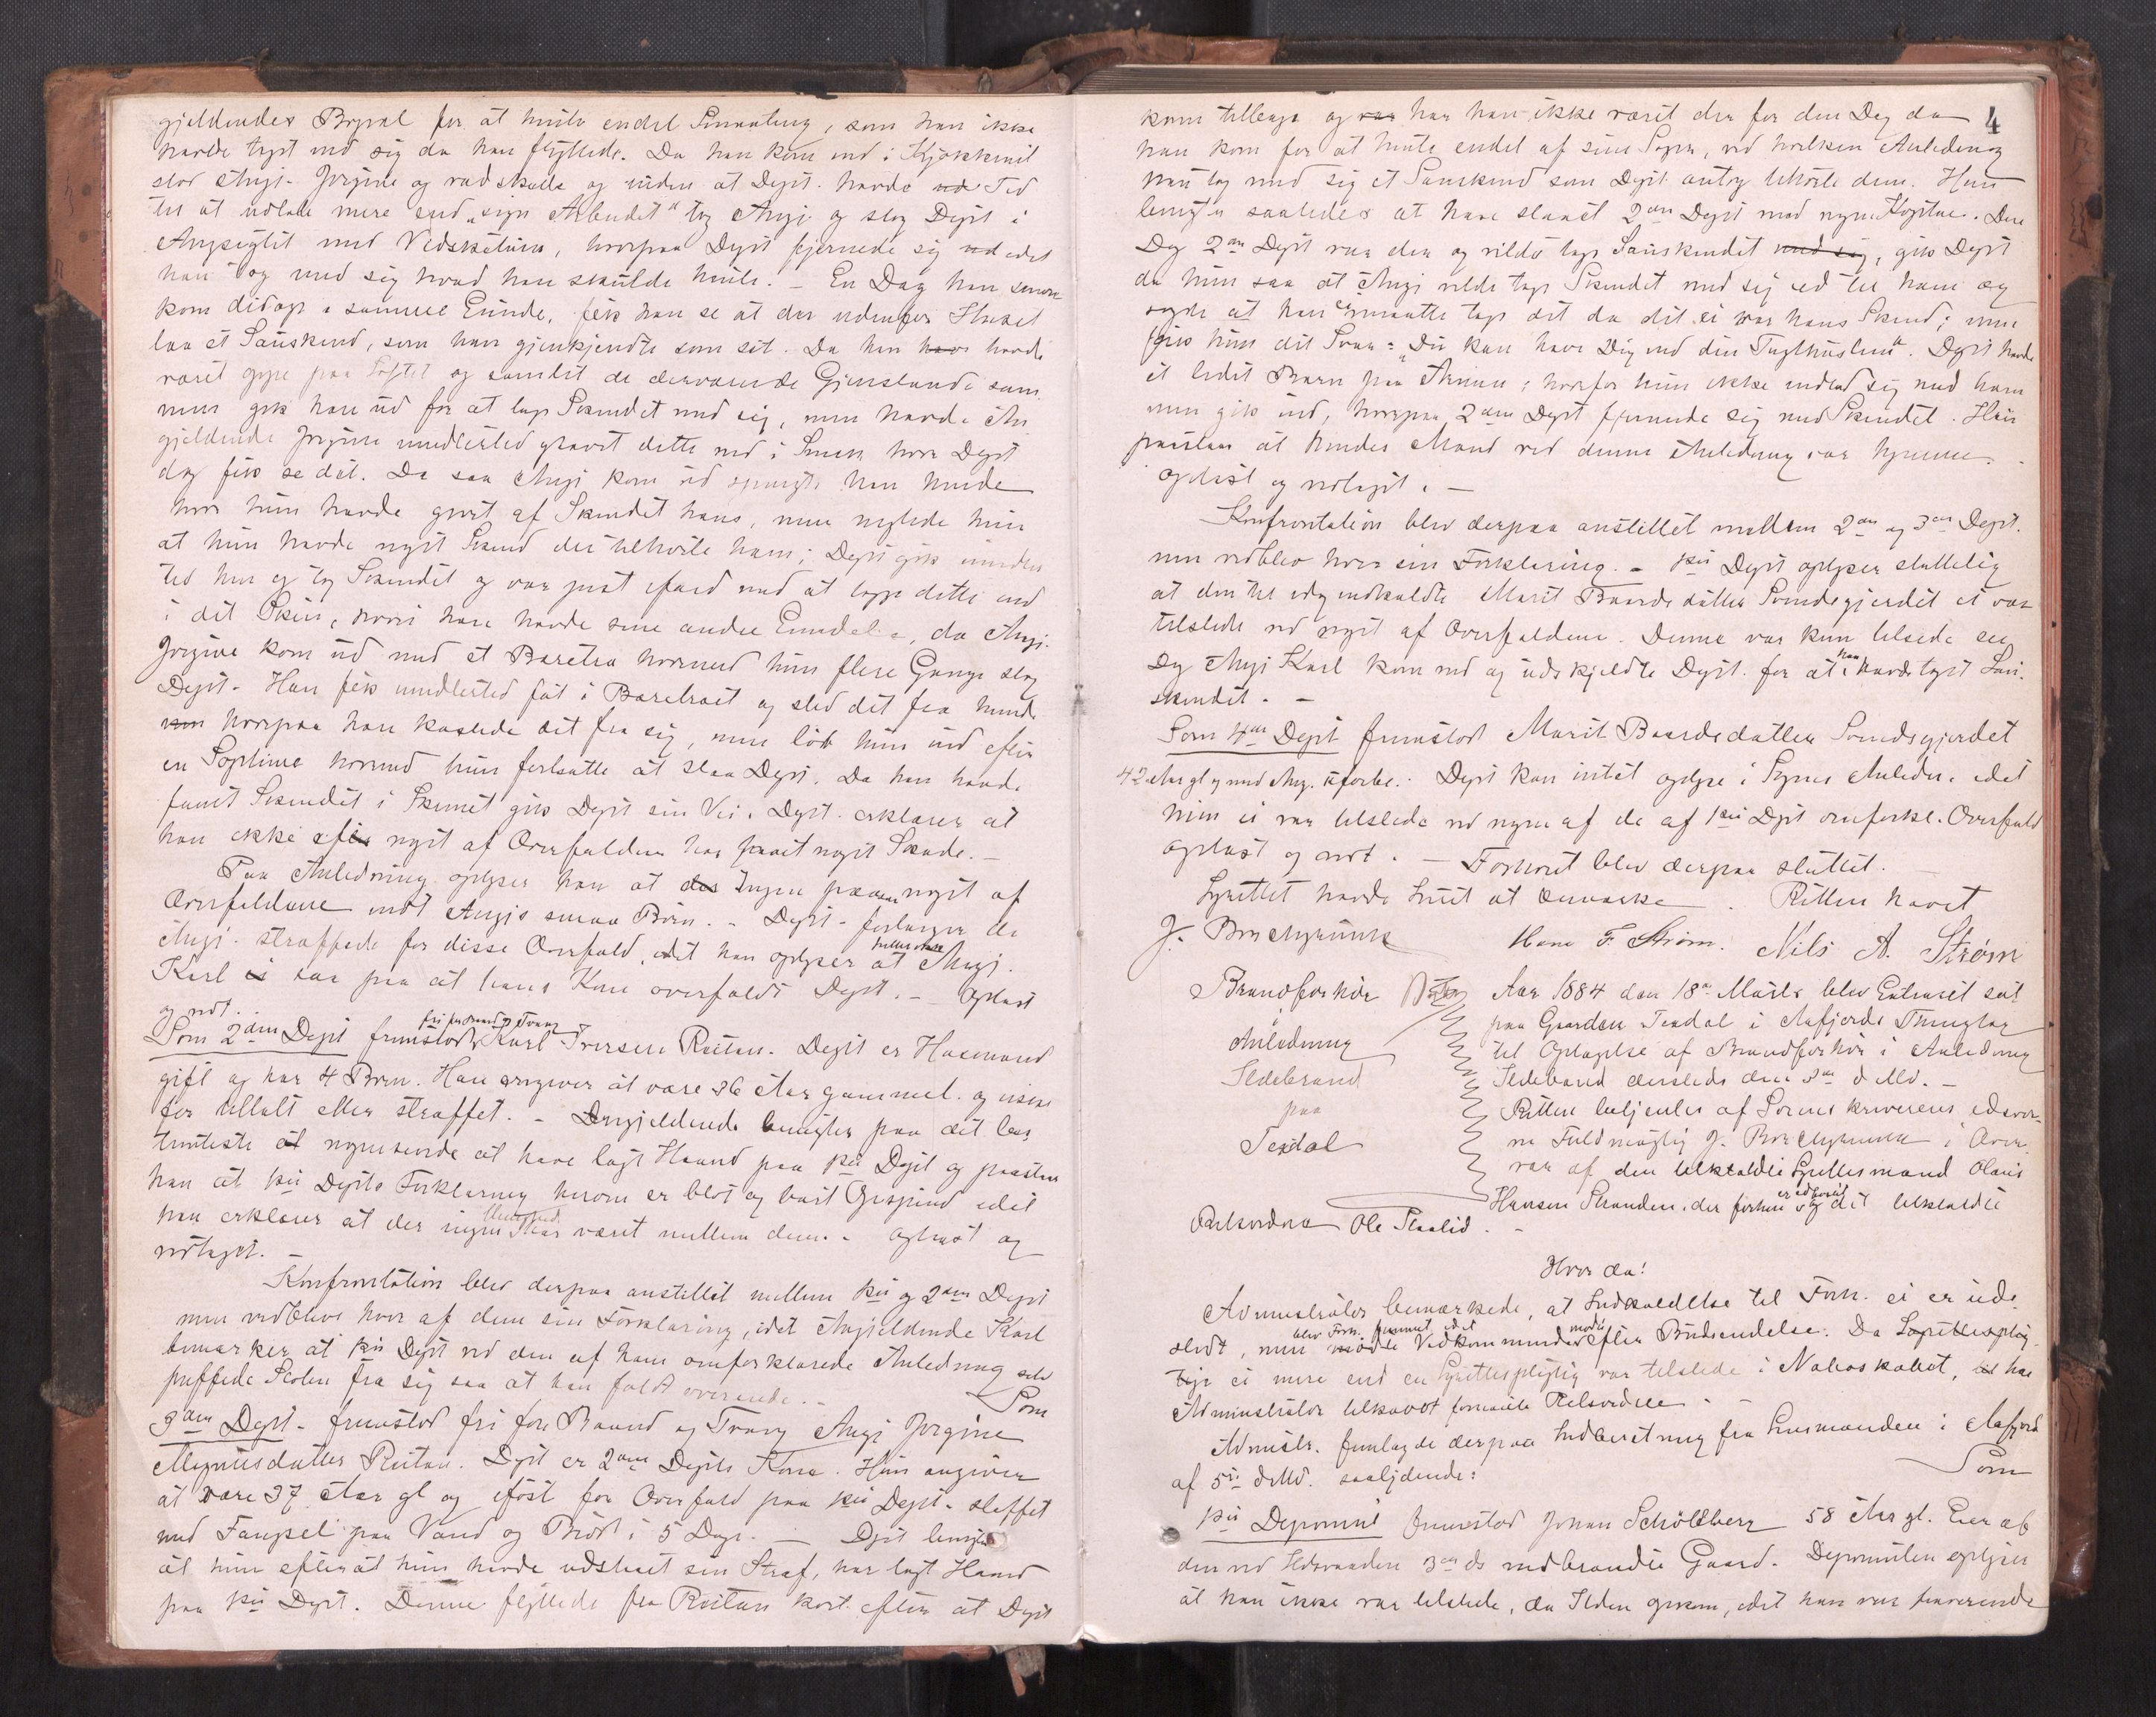 gjeldendes Bopæl for at hente endel Smaating, som han ikke
havde taget med sig da han flyttede. Da han kom ind i Kjøkkenet
stod Angj. Jørgine og vadskede og uden at Depit. havde Tid
til at udlade mere end "sign Arbeidet" tog Angj. og slog Depit i
Angsigtet med Vedskelien, hvorpaa Depit fjernede sig idet
han tog med sig hvad han skulde hente. – En Dag han senere
kom didop i samme Erinde, fik han se at der udenfor Huset
laa et Saueskind, som han gjenkjendte som sit. Da han havde
været oppe paa Loftet og samlet de derværende Gjenstande sam
men gik han ud for at tage Skindet med sig, men havde An
gjeldende Jørgine imidlertid gravet dette ned i Sneen hvor Depit
dog fik se det. Da saa Angj. kom ud spurgte han hende
hvor hun havde gjort af Skindet hans, men negtede hun
at hun havde noget Skind der tilhørte ham; Depit gik imidler
tid hen og tog Skindet og var just ifærd med at lægge dette ned
i det Skrin, hvori han havde sine andre Eiendele, da Angj.
Jørgine kom ud med et Baretræ hvormed hun flere Gange slog
Depit. Han fik imidlertid fat i Baretræet og sled det fra hende
hvorpaa han kastede det fra sig, men løb hun ind efter
en Soplime hvormed hun fortsatte at slaa Depit. Da han havde
faaet Skindet i Skrinet gik Depit sin Vei. Depit. erklærer at
han ikke efter noget af Overfaldene har faaet noget Skade. –
Paa Anledning oplyser han at Ingen saa noget af
Overfaldene undt Angjs smaa Børn. – Depit. forlanger de
Angj. straffede for disse Overfald, idet han oplyser at Angj.
Karl saa paa at hans Kone overfaldt Depit. – Oplæst
og vedt.
Som 2den Depit fremstod fri for Baand og Tvang Karl Iversen Reitan. Depit er Husmand
gift og har 4 Børn. Han angiver at være 36 Aar gammel og ikke
før tiltalt eller straffet. – Angjeldende benegter paa det be
stemteste at nogensinde at have lagt Haand paa 1ste Depit og paastaar
han at 1ste Depits Forklaring herom er blot og bart Opspind idet
han erklærer at der ingen Uenighed har været mellem dem. – Oplæst og
vedtaget. –
Konfrontation blev derpaa anstillet mellem 1ste og 2den Depit
men vedblev hver af dem sin Forklaring, idet Angjeldende Karl
bemærker at 1ste Depit ved den af ham omforklarede Anledning selv
puffede Stolen fra sig saa at han faldt overende. – Som
3den Depit. fremstod fri for Baand og Tvang Angj. Jørgine
Magnusdatter Reitan. Depit er 2den Depits Kone. Hun angiver
at være 37 Aar gl og før for Overfald paa 1ste Depit. straffet
med Fængsel paa Vand og Brød i 5 Dage. – Depit benegter
at hun efterat hun havde udstaaet sin Straf, har lagt Haand
paa 1ste Depit. Denne flyttede fra Reitan kort efter at Depit
4
kom tilbage og har han ikke været der før den Dag da
han kom for at hente endel af sine Sager, ved hvilken Anledning
han tog med sig et Saueskind som Depit. antog tilhørte dem. Hun
benegter saaledes at have slaaet 2den Depit med nogen Kost. Den
Dag 2den Depit var der og vilde tage Saueskindet, gik Depit
da hun saa at Angj vilde tage Skindet med sig ud til ham og
sagde at han ei maatte tage det da det ei var hans Skind; men
fik hun det Svar: "Du kan have Dig ind din Tugthuslem". Depit havde
et lidet Barn paa Armen; hvorfor hun ikke indlod sig med ham
men gik ind, hvorpaa 2den Depit fjernede sig med Skindet. Hun
paastaar at hendes Mand ved denne Anledning var hjemme.
Oplæst og vedtaget. –
Konfrontation blev derpaa anstillet mellem 2den og 3die Depit.
men vedblev hver sin Forklaring. – 1ste Depit oplyser sluttelig
at den til idag indkaldte Marit Baardsdatter Svendsgjerdet ei var
tilstede ved noget af Overfaldene. Denne var kun tilstede en
Dag Angj Karl kom ned og udskjeldte Depit. for at han havde taget Saue
skindet. –
Som 4de Depit fremstod Marit Baardsdatter Svendsgjerdet
42 Aar gl og med Angj. uforbe. Depit kan intet oplyse i Sagens Anledn. idet
hun ei var tilstede ved nogen af de af 1ste Depit omforkl. Overfald
Oplæst og vedt. – Forhøret blev derpaa sluttet.
Lgrettet havde Intet at bemærke. Retten hævet
J. Brochgrünk Hans F. Strøm. Nils A. Strøm
Brandforhør
i
Anledning
Ildebrand
paa
Texdal
Aar 1884 den 18de Marts blev Extraret sat
paa Gaarden Texdal i Aafjords Thinglag
til Optagelse af Brandforhør i Anledning
Ildebrand dersteds den 3die d. Md. –
Retten betjentes af Sorenskriverens edsvor
ne Fuldmægtig J. Brochgrünk i Over
vær af den tilkaldte Lgrettesmand Olaus
Hansen Stranden, der forhen er edfæstet og det tilkaldte
Retsvidne Ole Staalid. –
Hvor da!
Administrator bemærkede, at Indkaldelse til Forh. ei er ud
stedt, men blev Forh. fremmet idet Vedkommende mødte efter Budsendelse. Da Lgrettesplig
tige ei mere end en Lgrettespligtig var tilstede i Naboskabet, har
Administrator tilkaldt fornævnte Retsvidne.
Administr. fremlagde derpaa Indberetning fra Lensmanden i Aafjord
af 5te d. Md. saalydende: Som
1ste Deponent fremstod Johan Schøllberg 58 Aar gl. Eier af
den ved Ildsvaaden 3die ds nedbrændte Gaard. Deponenten oplyser
at han ikke var tilstede, da Ilden opkom, idet han var fraværende